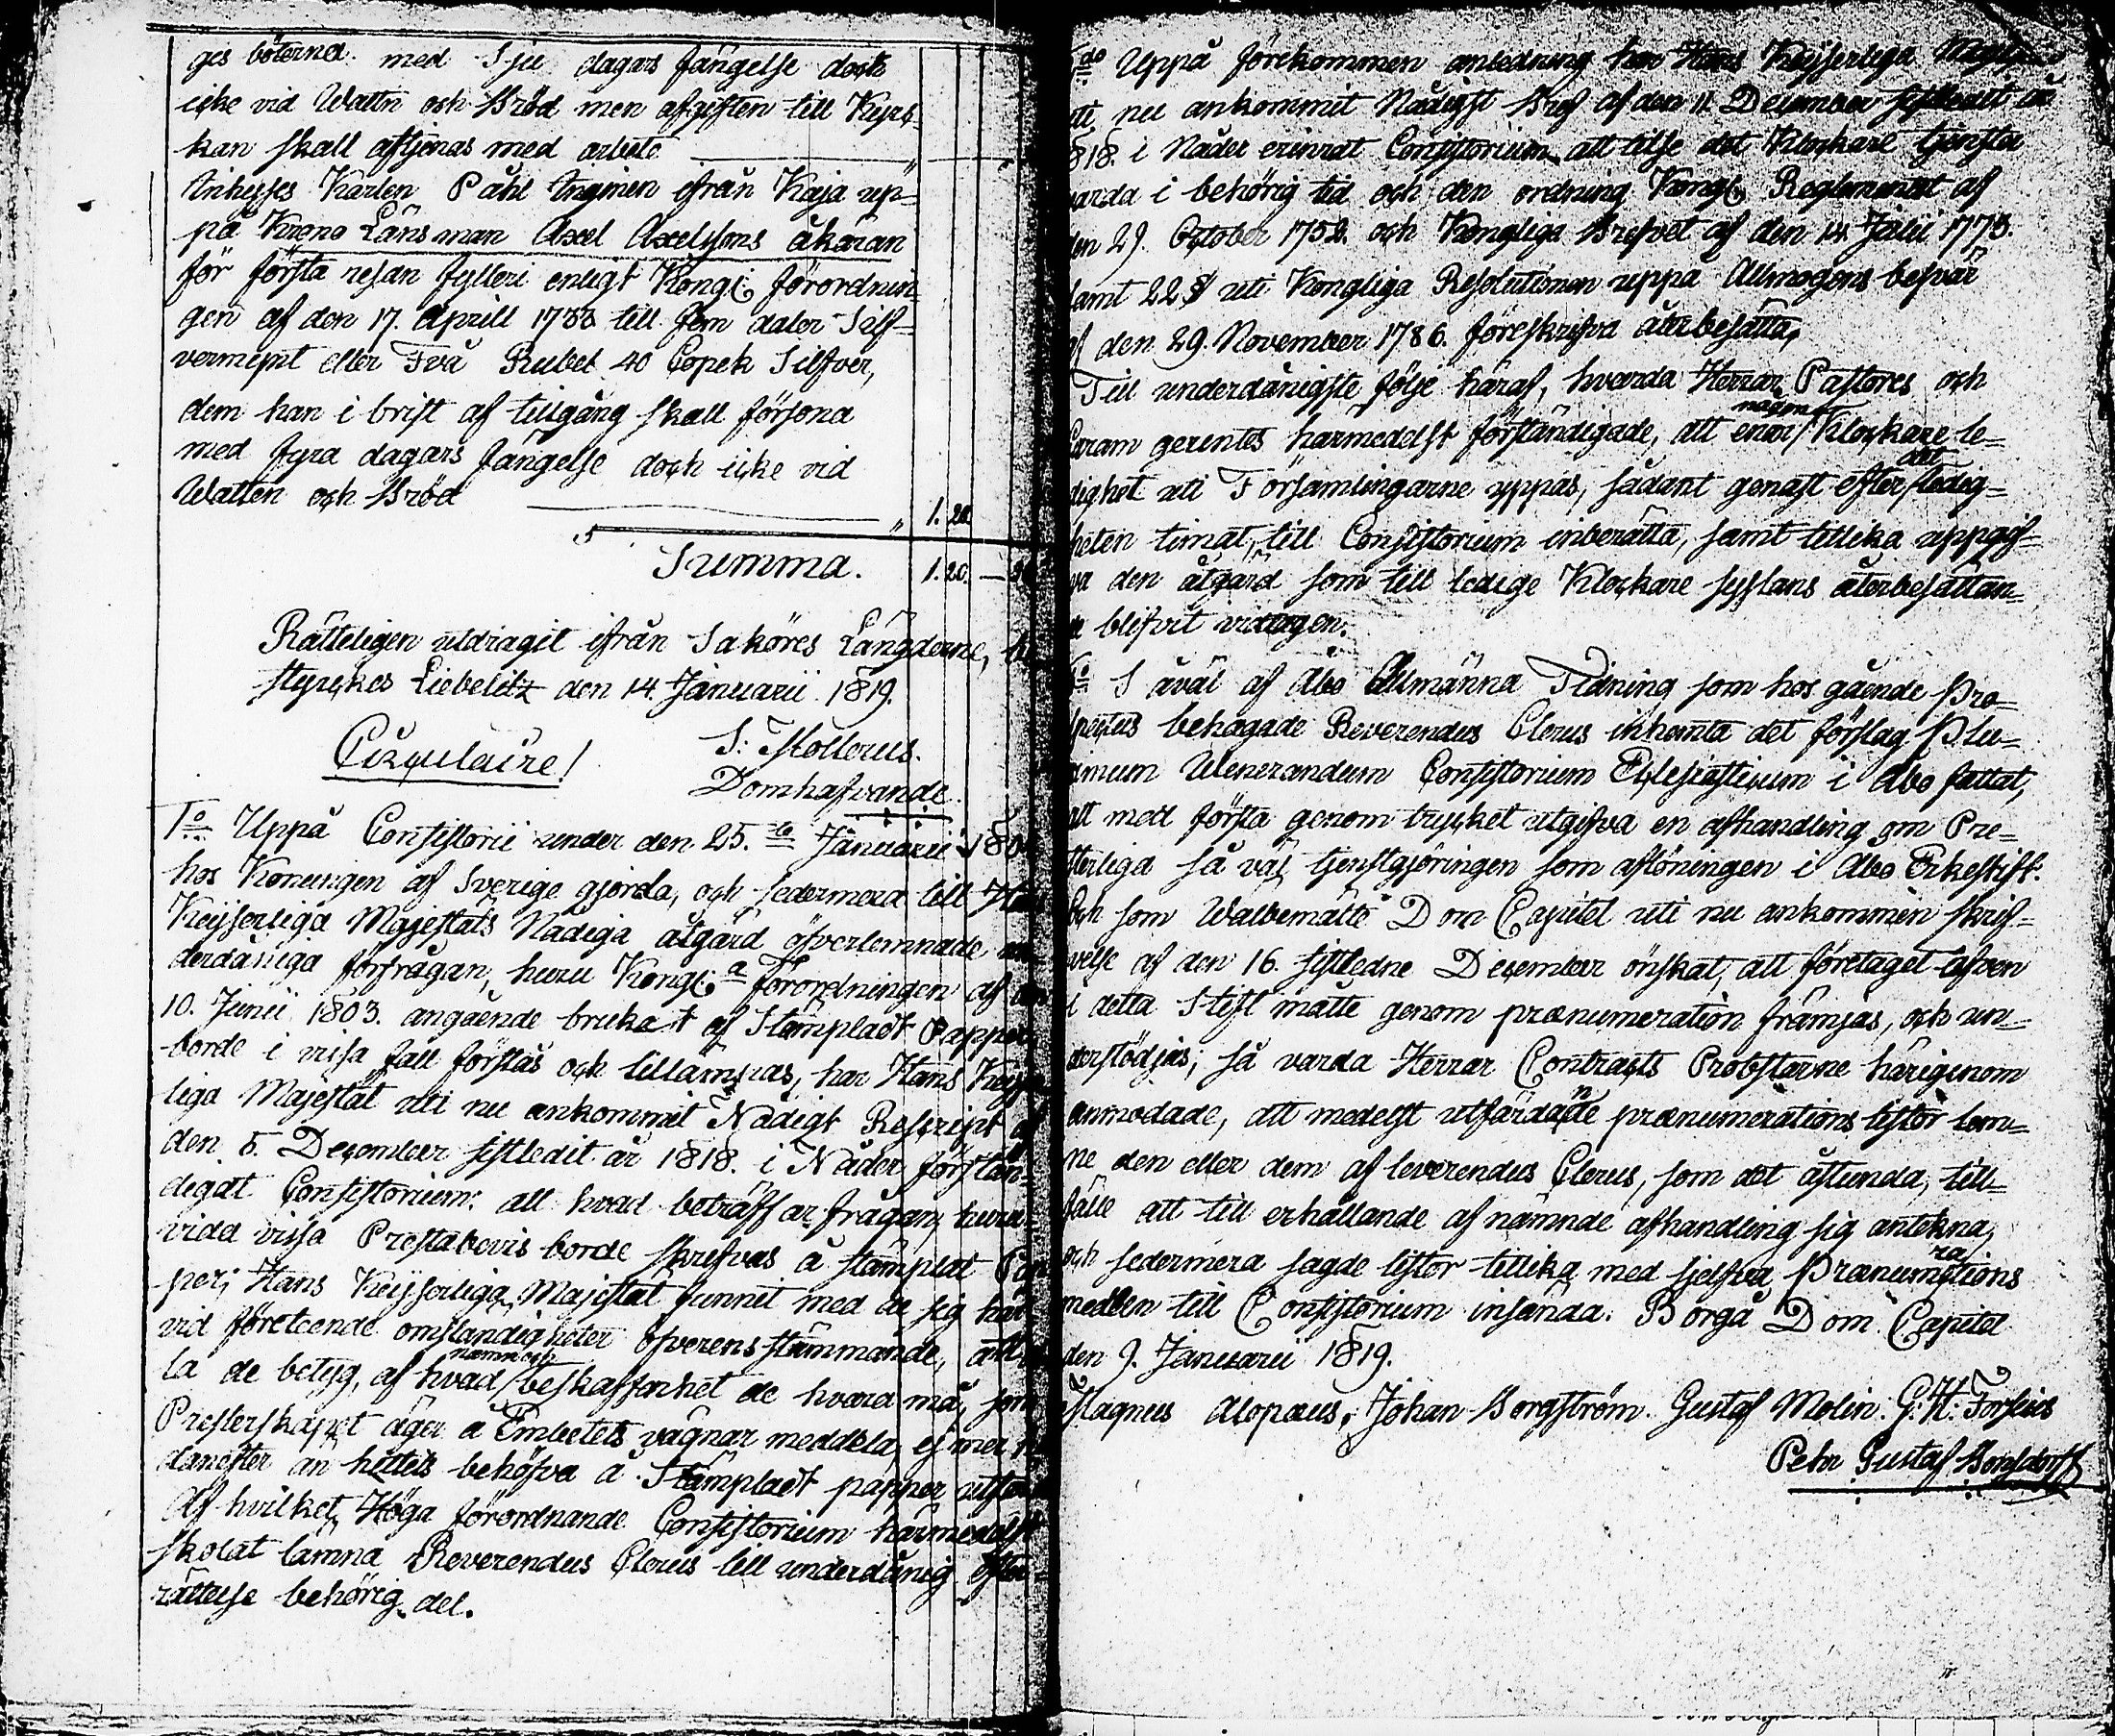 ges böterna med Sju dagars fängelse doch
icke vid Wattn och Bröd men afgiften till Kyrc-
kan skall aftjenas med arbete
Inhyses Karlen Påhl Ingmen ifrån Kaja up-
på Krono Länsman Axel Axelssons åkäran
för första resan fylleri enligt Kongl. förordnin-
gen af den 17. Aprill 1733 till fem daler Silf-
vermynt eller Två Rubel 40 Copek Silfver,
dem han i brist af tillgång skall försona
med fyra dagars fängelse doch icke vid
Watten och Bröd 1. 20
Summa. 1. 20.
Rätteligen utdragit ifrån Saköres Längderne,
styrckes Liebelitz den 14. Januarii 1819.
S: Molerus.
Domhafvande
Circulaire!
1o Uppå Consistorii under den 25.te Januarii
hos Konungen af Sverige gjorda, och sedermera till
Keijserliga Majestäts Nådiga åtgärd öfverlemnade un-
derdåniga förfrågan, huru Kongl.a Förordningen af den
10. Junii 1803. angående bruket af Stämpladt Papper
borde i vissa fall förstås och tillämpas, har Hans Keijser
liga Majestät uti nu ankommit Nådigt Rescript af
den 5. December sistledit år 1818. i Nåder förstän-
digat Consistorium: att hvad beträffar frågan, huru-
vida vissa Prestabevis borde skrifvas å stämplat Pap
per; Hans Keijserliga Majestät funnit med de sig här
vid företeende omständigheter öfverensstämmande, att
la de betyg, af hvad namn och beskaffenhet de hvara må, som
Presterskapet äger å Embetets vägnar meddela, ej mer
danefter än hittils behöfva å Stämpladt papper
Af hvilket Höga förordnande Consistorium härmedelst
skolat lämna Reverendus Clerus till underdånig efter-
rättelse behörig del.
2do Uppå förekommen anledning har Hans Keijserliga Majestät
uti nu ankommit Nådigst Bref af den 11. December sistledit år
1818. i Nåder erinrat Consistorium att tilse det Klockare tjenster
varda i behörig tid och den ordning Kongl. Reglementet af
den 29. October 1752. och Kongliga Brefvet af den 14. Julii 1773.
samt 22 § uti Kongliga Resolutionen uppå Allmogens besvär
af den 29. November 1786. föreskrifva återbesätta,
Till underdånigste följe häraf, hvarda Herrar Pastores och
Curam gerentes härmedelst förständigade, att enär någon Klockare le-
dighet uti Församlingarne yppas, sådant genast efter det ledig-
heten timat, till Consistorium inberätta, samt tillika uppgif-
va den åtgärd som till ledige Klockare sysslans återbesättan-
de blifvit vidtagen.
3o Såväl af Åbo Allmänna Tidning som hos gående Pro-
spectus behagade Reverendus Clerus inhemta det förslag Plu-
rimum Venerandum Consistorium Ecclesiasticum i Åbo fattat,
att med första genom trycket utgifva en afhandling om Pre-
sterliga så väl tjenstgjöringen som aflöningen i Åbo Erkestift.
Och som Walbemälte Dom Capitel uti nu ankommen skrif-
velse af den 16. sistledne December önskat, att företaget äfven
i detta Stift måtte genom prænumeration främjas, och un-
derstödjas; så varda Herrar Contracts Probstarne härigenom
anmodade, att medelst utfärdande prænumerations listor lem-
ne den eller dem af Reverendus Clerus, som det åstunda, till-
fälle att till erhållande af nämnde afhandling sig antekna,
och sedermera sagde listor tillika med sjelfva Prænumerations
medlen till Consistorium insända. Borgå Dom Capitel
den 9. Januarii 1819.
Magnus Alopæus, Johan Borgström. Gustaf Molin. G: H: Forsius
Pehr Gustaf Bonsdorff